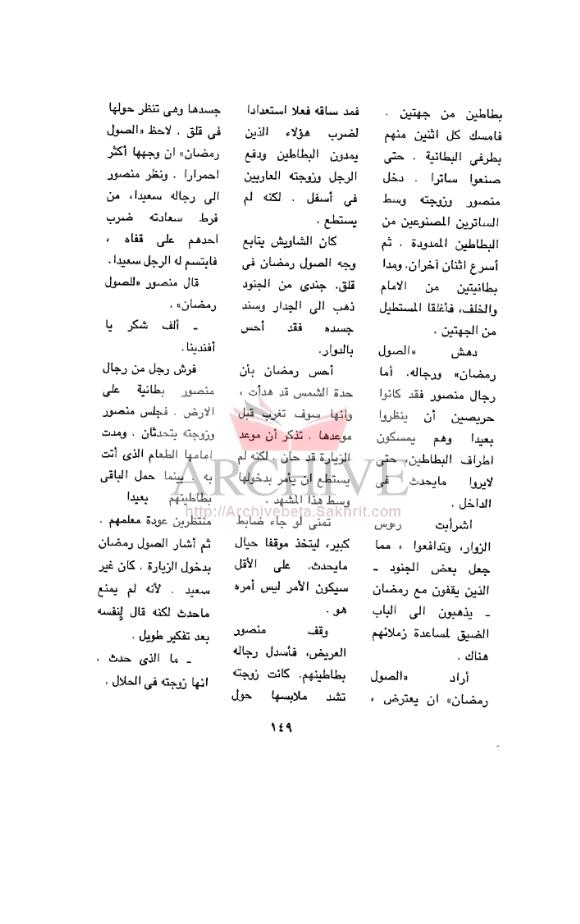 بطاطين من جهتين .
فامسك كل اثنين منهم
بطرفى البطانية . حتى
صنعوا ساترا . دخل
منصور وزوجته وسط
الساترين المصنوعين من
البطاطين الممدودة . ثم
أسرع اثنان آخران، ومدا
بطانيتين من الامام
والخلف، فأغلقا المستطيل
من الجهتين .
دهش «الصول
رمضان» ورجاله. أما
رجال منصور فقد كانوا
حريصين أن ينظروا
بعيدا وهم يمسكون
اطراف البطاطين، حتى
لايروا مايحدث فى
الداخل .
اشرأبت رءوس
الزوار، وتدافعوا ، مما
جعل بعض الجنود ـ
الذين يقفون مع رمضان
ـ يذهبون الى الباب
الضيق لمساعدة زملائهم
هناك .
أراد «الصول
رمضان» ان يعترض ،
فمد ساقه فعلا استعدادا
لضرب هؤلاء الذين
يمدون البطاطين ودفع
الرجل وزوجته العاريين
فى أسفل . لكنه لم
يستطع .
كان الشاويش يتابع
وجه الصول رمضان فى
قلق. جندى من الجنود
ذهب الى الجدار وسند
جسده فقد أحس
بالدوار.
أحس رمضان بأن
حدة الشمس قد هدأت ،
وأنها سوف تغرب قبل
موعدها . تذكر أن موعد
الزيارة قد حان . لكنه لم
يستطع ان يأمر بدخولها
وسط هذا المشهد .
تمنى لو جاء ضابط
كبير، ليتخذ موقفا حيال
مايحدث. على الأقل
سيكون الأمر ليس أمره
هو .
وقف منصور
العريض، فأسدل رجاله
بطاطينهم. كانت زوجته
تشد ملابسها حول
جسدها وهى تنظر حولها
فى قلق . لاحظ «الصول
رمضان» ان وجهها أكثر
احمرارا . ونظر منصور
الى رجاله سعيدا، من
فرط سعادته ضرب
احدهم على قفاه ،
فابتسم له الرجل سعيدا.
قال منصور «للصول
رمضان» .
ـ ألف شكر يا
أفندينا.
فرش رجل من رجال
منصور بطانية على
الارض . فجلس منصور
وزوجته يتحدثان . ومدت
امامها الطعام الذى أتت
به . بينما حمل الباقى
بطاطينهم بعيدا
منتظرين عودة معلمهم .
ثم أشار الصول رمضان
بدخول الزيارة . كان غير
سعيد . لأنه لم يمنع
ماحدث لكنه قال لنفسه
بعد تفكير طويل .
ـ ما الذى حدث .
انها زوجته فى الحلال .
ARCHIVE
http://Archivebeta.Sakhrit.com
١٤٩